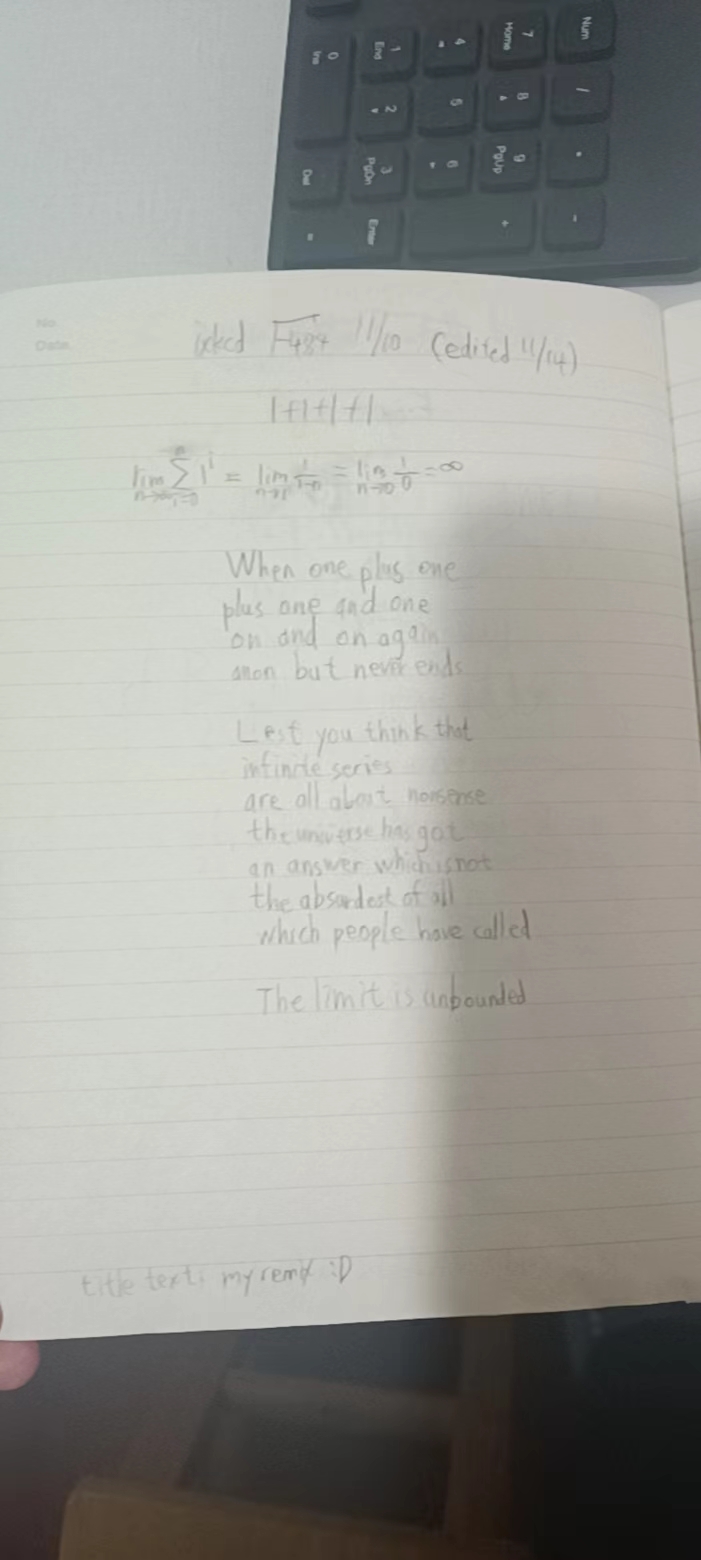 Num
7
Home
4
1
End
0
Ins
/
8
5
2
*
9
PgUp
6
3
PgDn
Del
-
+
Enter
No.
Date.
11/10 (edited 11/14)
1+1+1+1......
lim n→∞ ∑ n i=0 1^i = lim 1/1-n = lim n→0 1/0 = ∞
When one plus one
plus one and one
on and on again
anon but never ends
Lest you think that
infinite series
are all about nonsense
the universe has got
an answer which is not
the absurdest of all
which people have called
The limit is unbounded
title text: my remix :D